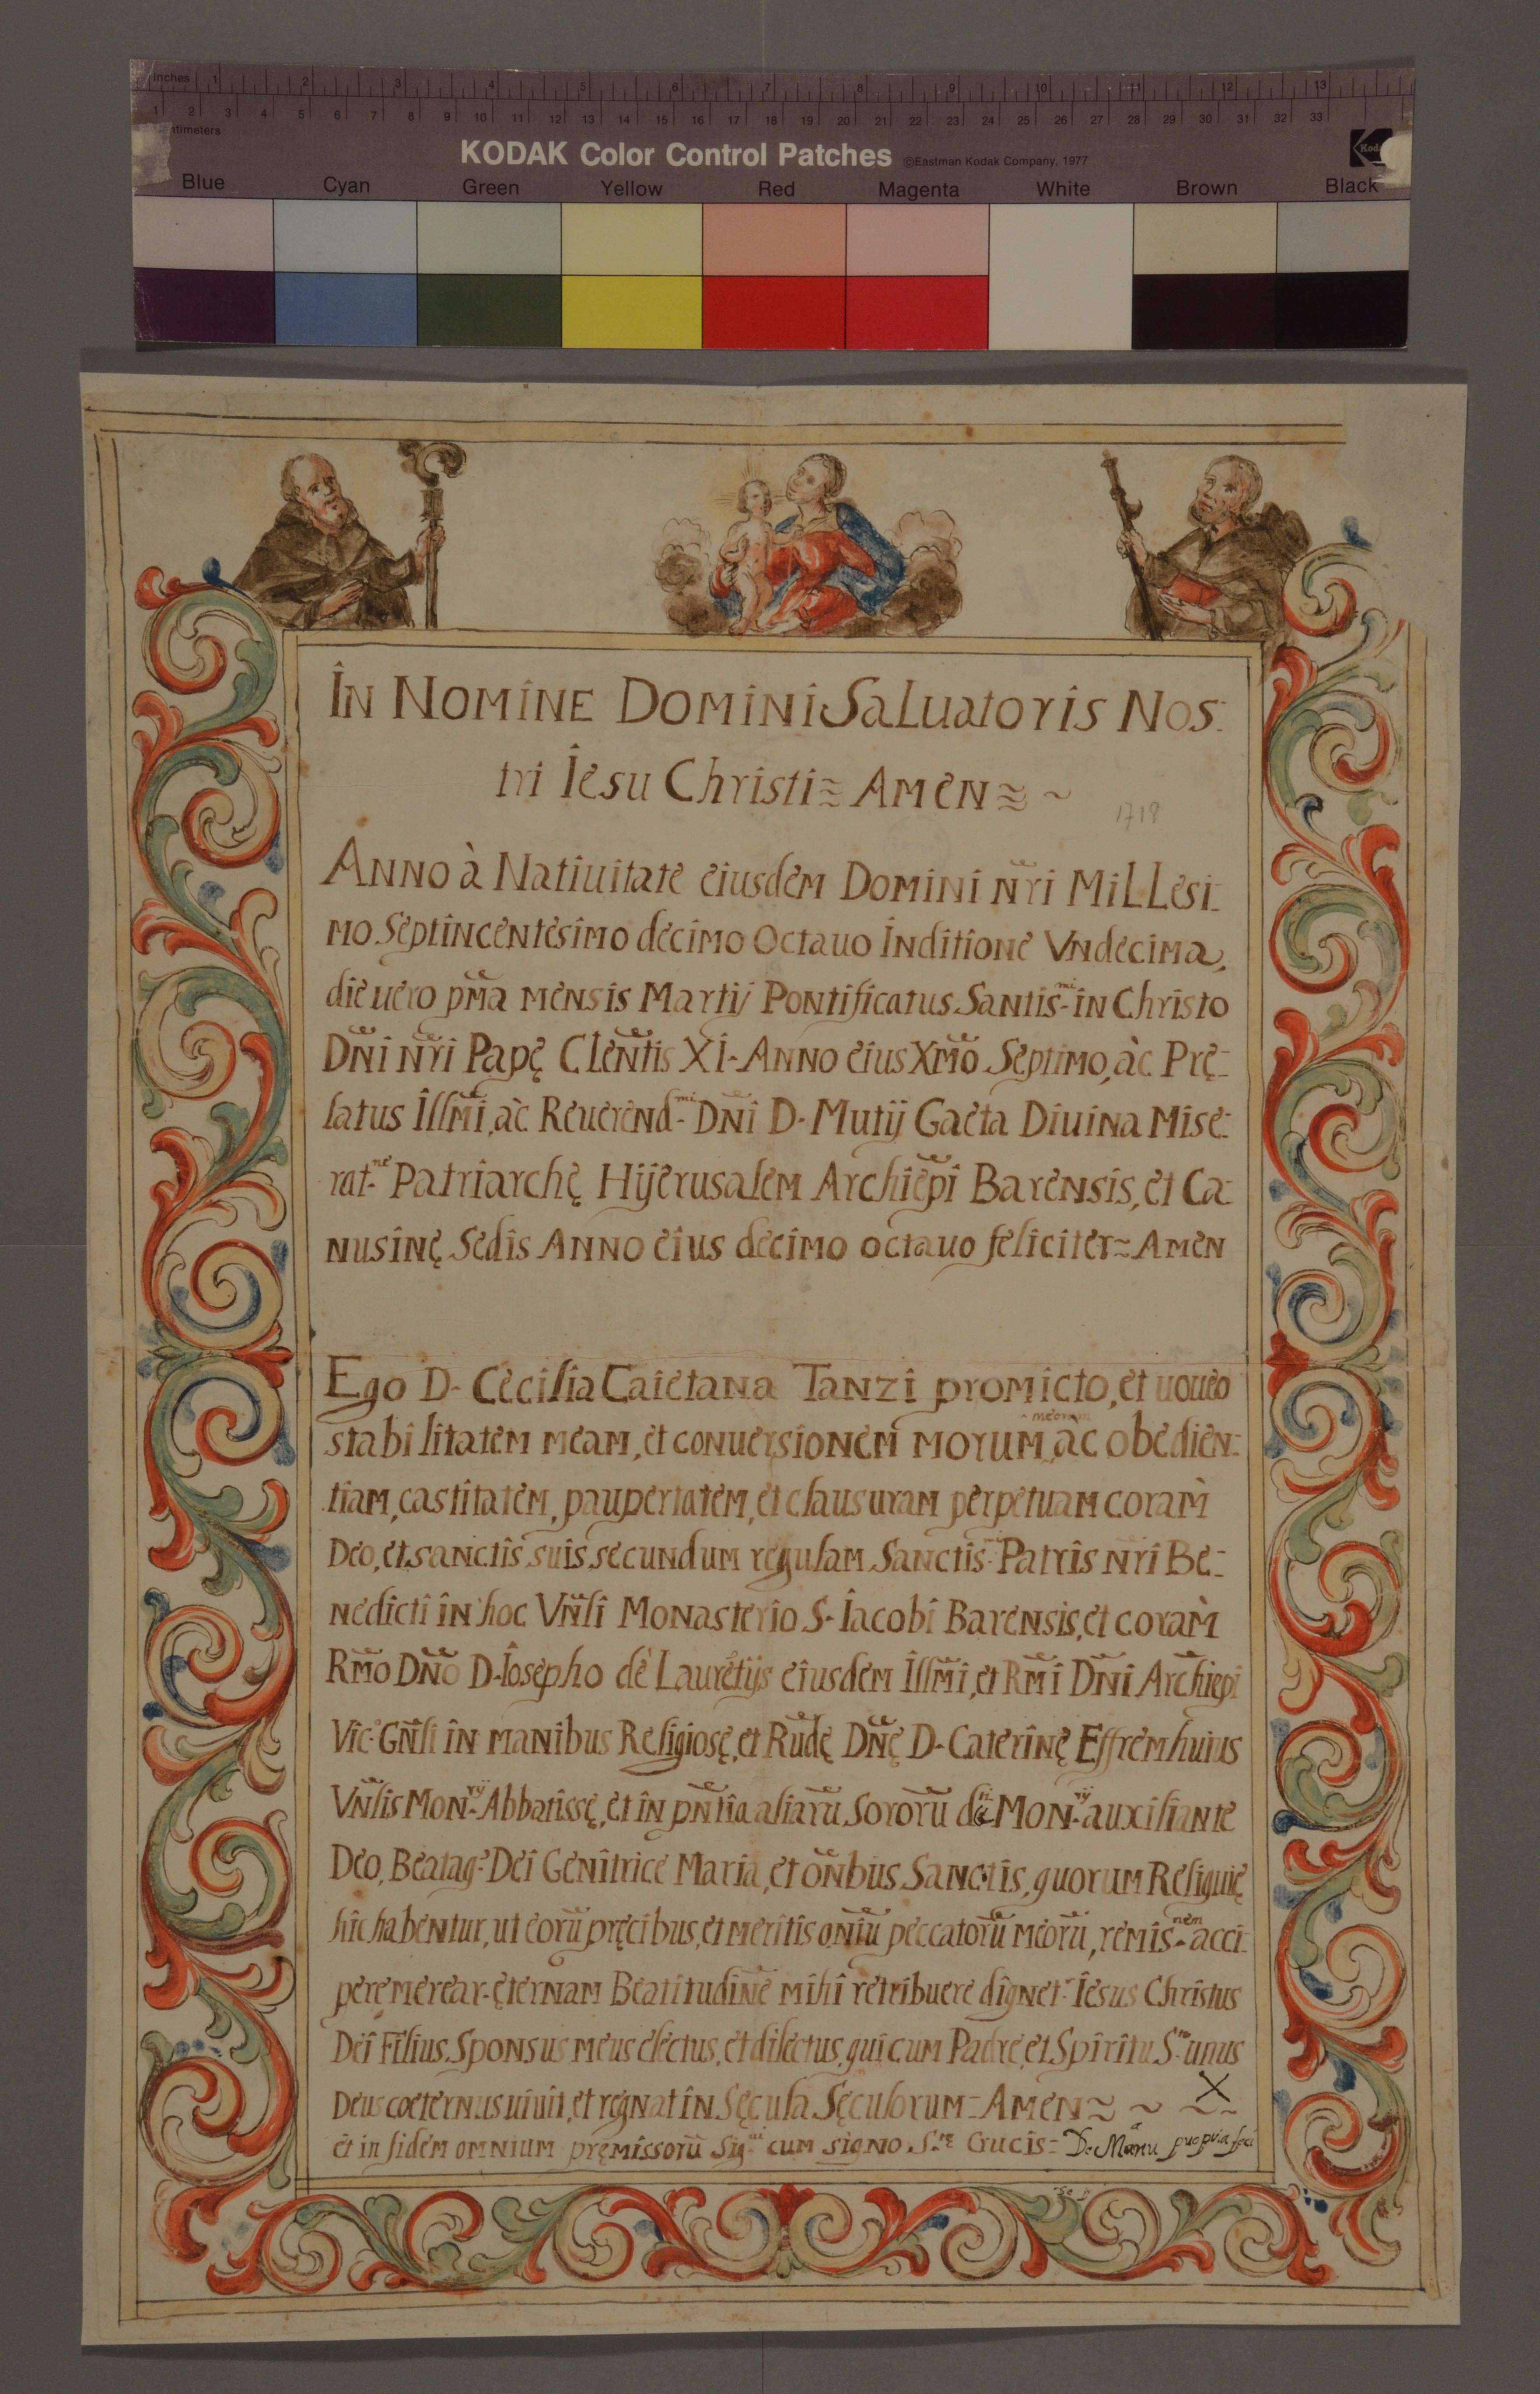 inches 1 2 3 4 5 6 7 8 9 10 11 12 13
1 2 3 4 5 6 7 8 9 10 11 12 13 14 15 16 17 18 19 20 21 22 23 24 25 26 27 28 29 30 31 32 33
Centimeters
KODAK Color Control Patches ©Eastman Kodak Company, 1977
Blue Cyan Green Yellow Red Magenta White Brown Black
În Nomine Domini Saluatoris Nos:
tri Îesu Christi≈ Amen≈ ~
1718
Anno à Natiuitate eiusdem Domini nr̃i Millesi:
mo Septincentesimo decimo Octauo Inditione Vndecima,
die uero pm̃a mensis Martij Pontificatus Santis-mi in Christo
Dñi nr̃i Papę Cleñtis XI- Anno eius Xm̃o Septimo, àc Prę:
latus Illm̃i, àc Reuerend-mi Dñi D- Mutij Gaeta Diuina Mise:
rat-ne Patriarchę Hijerusalem Archiep̃i Barensis, et Ca:
nusinę Sedis Anno eius decimo octauo feliciter≈ Amen
Ego D- Cecilia Caietana Tanzi promicto, et uoueo
stabilitatem meam, et conuersionem morum meorum, ac obedien:
tiam, castitatem, paupertatem, et clausuram perpetuam coram̀
Deo, et sanctis suis secundum regulam Sanctis- Patris nr̃i Be:
nedicti in hoc Vñli Monasterio S- Iacobi Barensis, et coram̀
Rm̃o Dño D- Iosepho de Laurẽtijs eiusdem Illm̃i, et Rm̃i Dñi Archiep̃i
Vic: Gñli in manibus Religiosę, et Rũdę Dñę D- Caterinę Effrem huius
Vñlis Mon-rij Abbatissę, et in pñtia aliarũ Sororũ di Mon-rij auxiliante
Deo, Beataq; Dei Genitrice Maria, et oñbus Sanctis, quorum Reliquię
hic habentur, ut eorũ pręcibus, et meritis oniũ peccatorũ meorũ, remis-nem acci:
pere merear- ęternam Beatitudinẽ mihi retribuere dignet- Iesus Christus
Dei Filius, Sponsus meus electus, et dilectus, qui cum Padre, et Spiritu S-to unus
Deus coeternus uiuit, et regnat in Sęcula Sęculorum- Amen≈ ~ X ~
et in fidem omnium pręmissorũ Sig-ui cum signo S-tę Crucis= De Manu propria feci